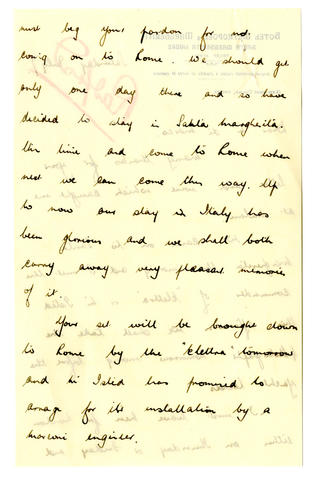 must beg your pardon for not
coming on to Rome. We should get
only one day there and so have
decided to stay in Santa Margherita
this time and come to Rome when
next we can come this way. Up
to now our stay in Italy has
been glorious and we shall both
carry away very pleasant memories
of it.
Your set will be brought down
to Rome by the "Elettra" tomorrow
and Mr Isted has promised to
arrange for its installation by a
Marconi engineer.